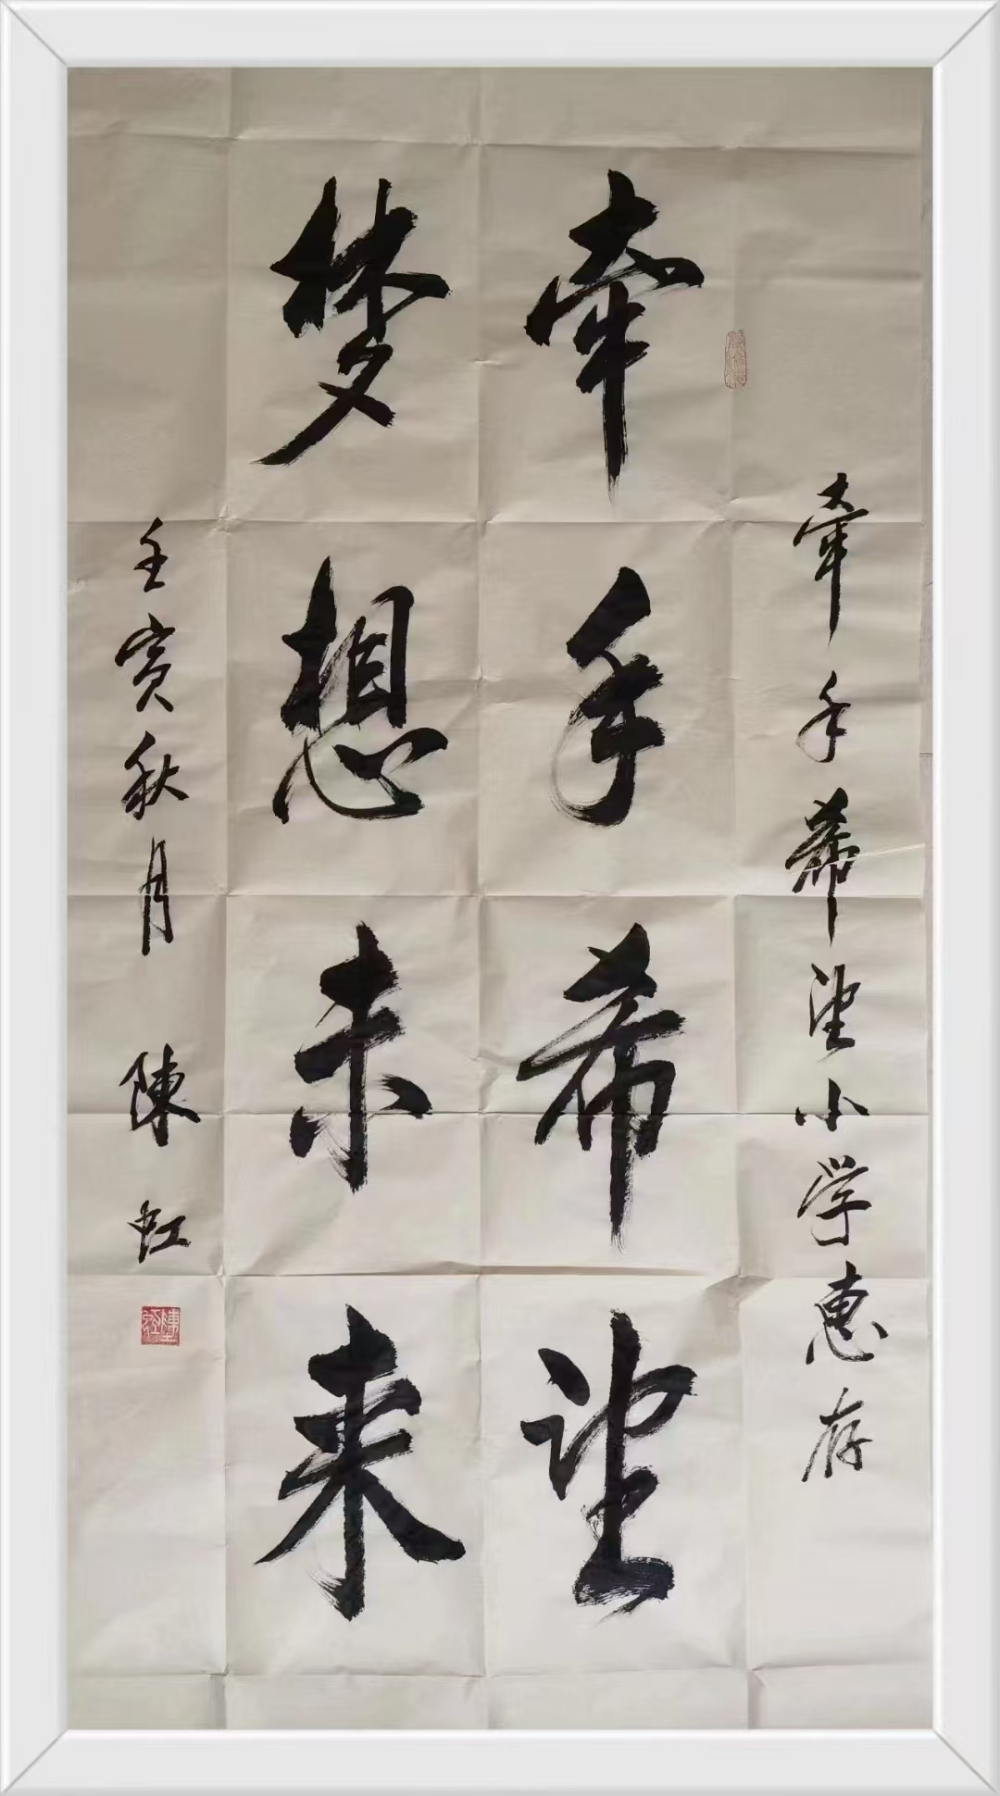 牵手希望小学惠存
牵手希望
梦想未来
壬寅秋月 陳虹
陳虹